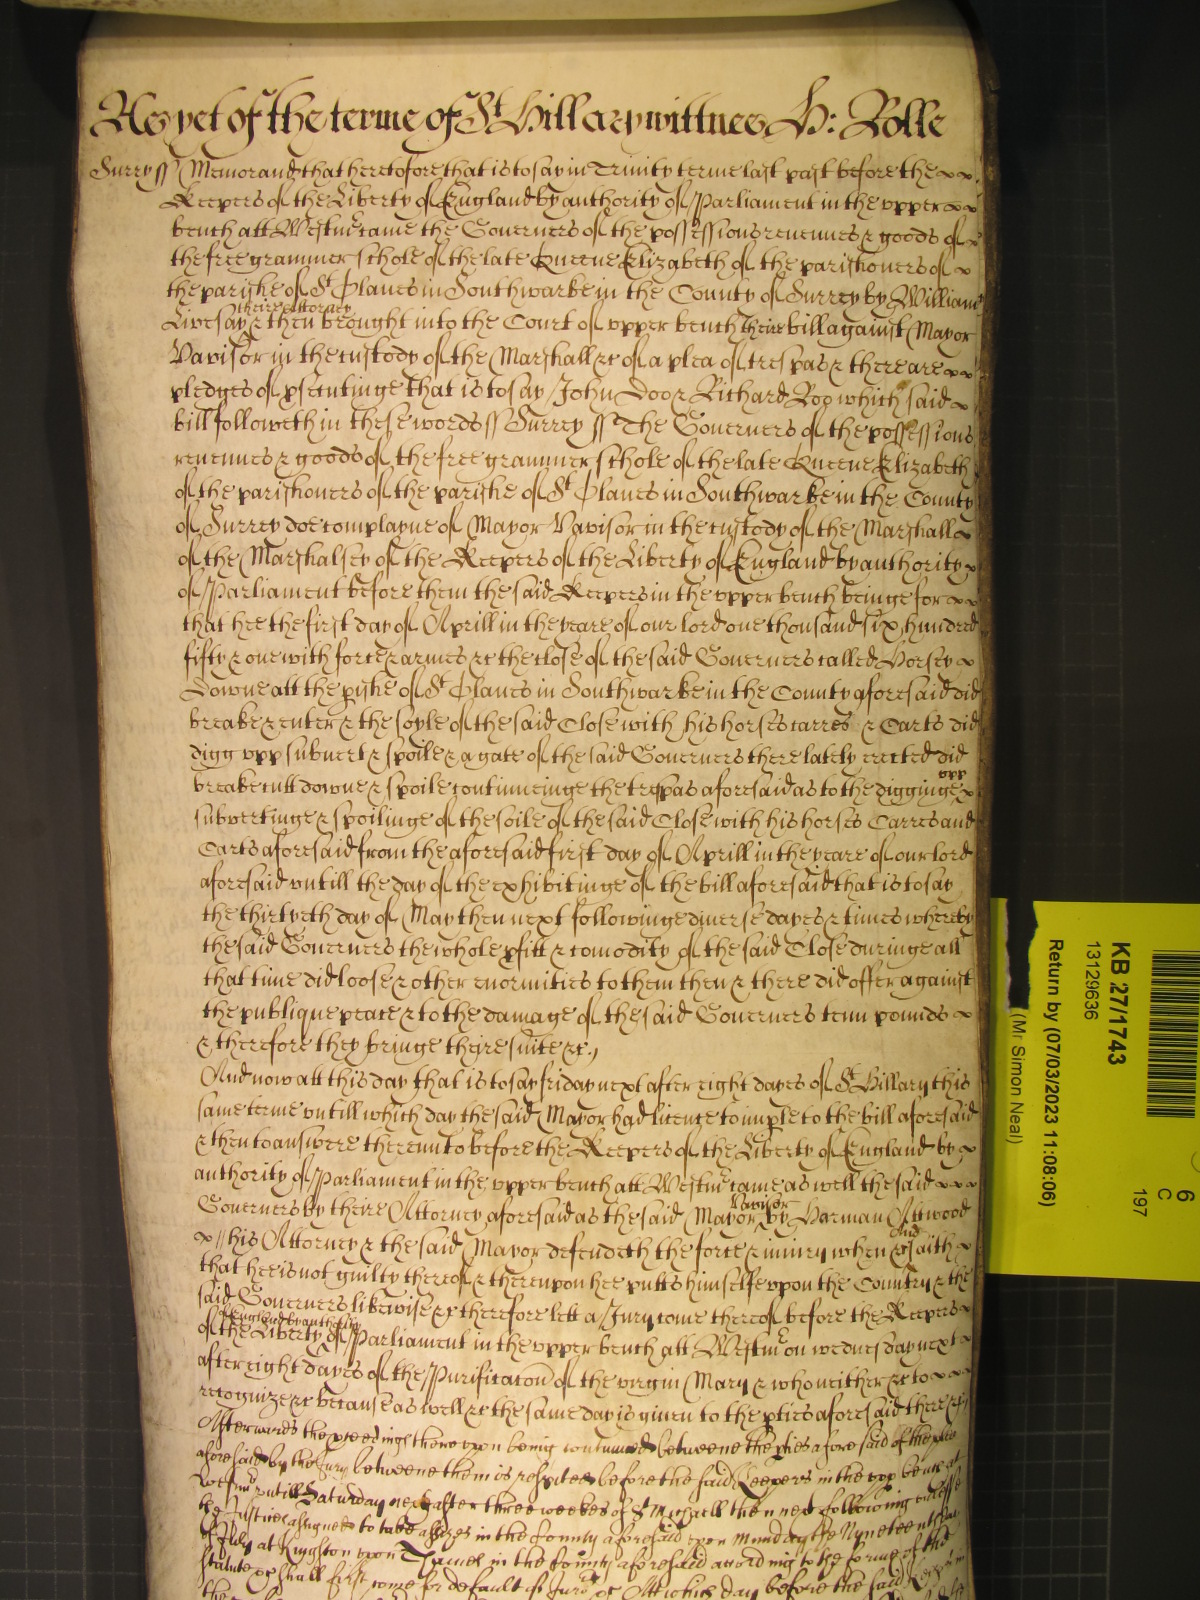 As yet of the terme of St Hillary wittnes H: Rolle
Surry ss Memorand that heretofore that is to say in Trinity terme last past before the
Keepers of the Liberty of England by authority of Parliament in the upper
bench att Westmr came the Governers of the possessions revenues & goods of
the free grammer schole of the late Queene Elizabeth of the parishoners of
the parishe of St Olaves in Southwarke in the County of Surrey by William
theire Attorney
Livesay & then brought into the Court of upper bench theire bill against Mayor
Vavisor in the custody of the Marshall &c of a plea of trespas & there are
pledges of psecutinge that is to say John Doo & Richard Roo which said
bill followeth in these words ss Surrey ss The Governers of the possessions
revenues & goods of the free grammer schole of the late Queene Elizabeth
of the parishoners of the parishe of St Olaves in Southwarke in the County
of Surrey doe complayne of Mayor Vavisor in the custody of the Marshall
of the Marshalsey of the Keepers of the Liberty of England by authority
of Parliament before them the said Keepers in the upper bench beinge for
that hee the first day of Aprill in the yeare of our lord one thousand six hundred
fifty & one with force & armes &c the close of the said Governers called Horsey
Downe att the pishe of St Olaves in Southwarke in the County aforesaid did
breake & enter & the soyle of the said Close with his horses carres & Carts did
digg upp subvert & spoile & a gate of the said Governers there lately erected did
breake cutt downe & spoile continueinge the trespas aforesaid as to the digginge upp
subvertinge & spoilinge of the soile of the said Close with his horses Carres and
Carts aforesaid from the aforesaid first day of Aprill in the yeare of our lord
aforesaid untill the day of the exhibitinge of the bill aforesaid that is to say
the thirtyeth day of May then next followinge diverse dayes & times whereby
the said Governers the whole pfitt & comodity of the said Close duringe all
that time did loose & other enormities to them then & there did offer against
the publique peace & to the damage of the said Governers tenn pounds
& therefore they bringe theire suite &c
And now att this day that is to say friday next after eight dayes of St Hillary this
same terme untill which day the said Mayor had licence to imple to the bill aforesaid
& then to answere thereunto before the Keepers of the Liberty of England by
authority of Parliament in the upper bench att Westmr came as well the said
Governers by theire Attorney aforesaid as the said Mayor Vavisor by Harman Attwood
his Attorney & the said Mayor defendeth the force & iniury when &c And saith
that hee is not guilty thereof & thereupon hee putts himselfe upon the Country & the
said Governers likewise &c therefore lett a Jury come thereof before the Keepers
of England by authority
of the Liberty of Parliament in the upper bench att Westmr on wednesday next
after eight dayes of the Purificacon of the virgin Mary & who neither &c to
recognize &c because as well &c the same day is given to the pties aforesaid there &c
Afterwards the pceedings thereupon being continued betweene the pties aforesaid of the plea
aforesaid by the Jury betweene them is respited before the said Keepers in the upp bench at
Westmr untill Saturday next after three weekes of St Michaell then next following unlesse
the Justices assigned to take assizes in the County aforesaid upon Munday the Nyneteenth
of July at Kingston upon Thames in the County aforesaid according to the forme of the
statute &c shall first come for default of Jurors &c Att which day before the said
KB 27/1743
13129636
Return by (07/03/2023 11:08:06)
(Mr Simon Neal)
6
C
197